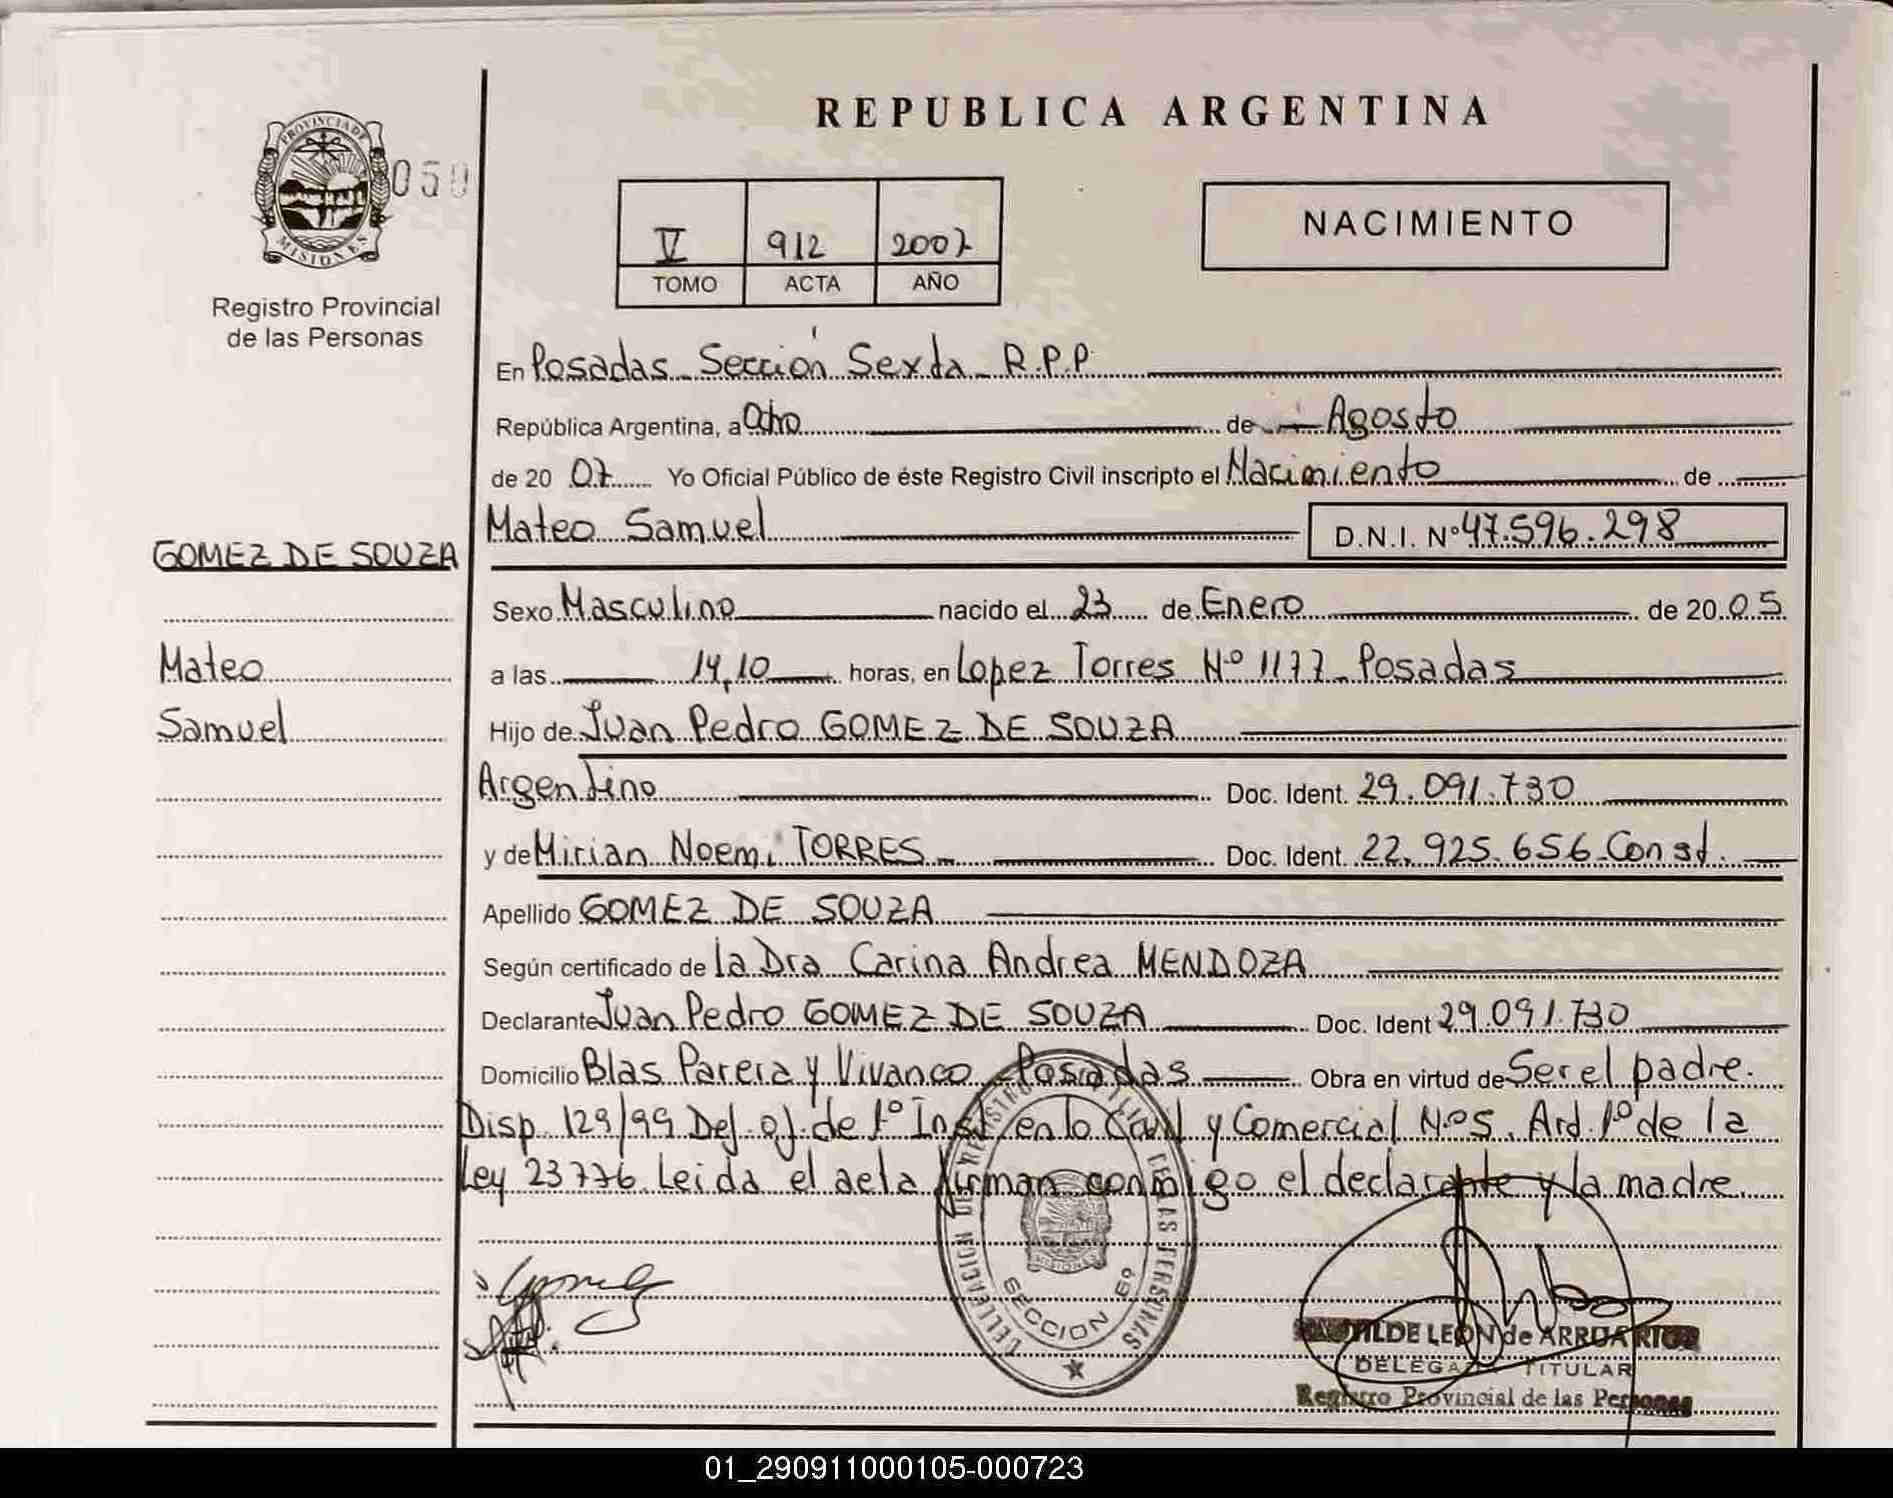 REPUBLICA ARGENTINA
PROVINCIA DE
MISIONES
050
Registro Provincial
de las Personas
V 912 2007
TOMO ACTA AÑO
NACIMIENTO
En Posadas - Sección Sexta - R.P.P.
República Argentina, a Ocho de Agosto
de 20 07 Yo Oficial Público de éste Registro Civil inscripto el Nacimiento de
Mateo Samuel D.N.I. Nº 47.596.298
GOMEZ DE SOUZA
Sexo Masculino nacido el 23 de Enero de 20 05
Mateo
a las 14,10 horas, en Lopez Torres Nº 1177 - Posadas
Samuel
Hijo de Juan Pedro GOMEZ DE SOUZA
Argentino Doc. Ident. 29.091.730
y de Mirian Noemi TORRES - Doc. Ident. 22.925.656 - Const.
Apellido GOMEZ DE SOUZA
Según certificado de la Dra Carina Andrea MENDOZA
Declarante Juan Pedro GOMEZ DE SOUZA Doc. Ident 29.091.730
Domicilio Blas Parera y Vivanco - Posadas Obra en virtud de Ser el padre.
Disp. 129/99 Def. of. de 1º Inst. en lo Civil y Comercial Nº 5. Art. 1º de la
Ley 23776. Leida el acta firman conmigo el declarante y la madre.
DELEGACION DE REGISTRO DE LAS PERSONAS
MISIONES
SECCION 6º
LEON de ARRUA RIOS
DELEGADA TITULAR
Registro Provincial de las Personas
01_290911000105-000723